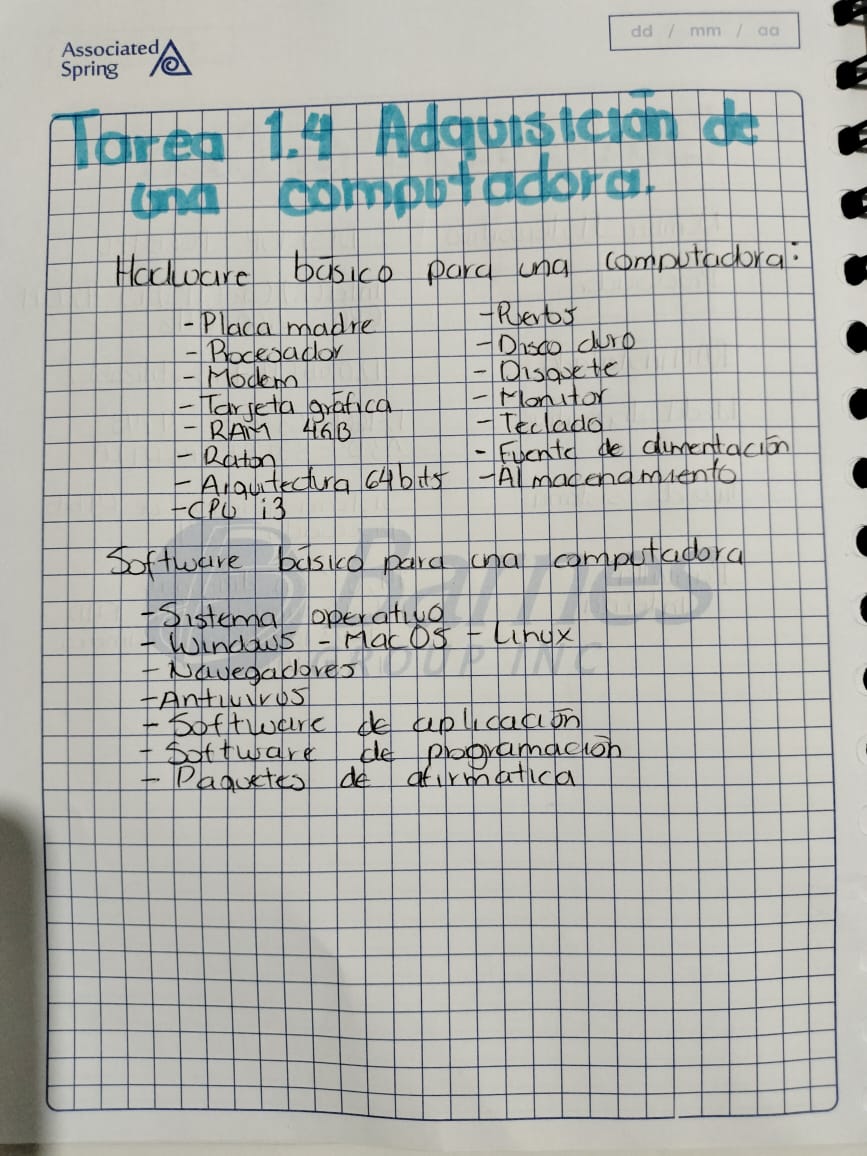 Associated
Spring
dd / mm / aa
Tarea 1.4 Adquisición de
una computadora.
Hadware básico para una computadora:
- Placa madre
- Procesador
- Modem
- Tarjeta gráfica
- RAM 4GB
- Raton
- Arquitectura 64bits
- CPU i3
- Puertos
- Disco duro
- Disquete
- Monitor
- Teclado
- Fuente de alimentación
- Almacenamiento
Software básico para una computadora
- Sistema operativo
- Windows - Mac OS - Linux
- Navegadores
- Antivirus
- Software de aplicación
- Software de programación
- Paquetes de afirmatica
Barnes
GROUP INC